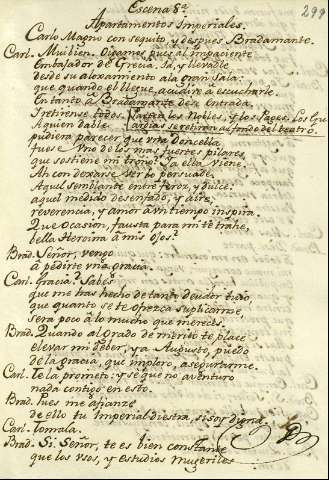 Escena 8ª
299
Apartamentos Imperiales.
Carlo Magno con seguito, y despues Bradamante.
Carl. Muibien. Oigamos pues al impaciente
Embajador de Grecia. Id, y llevadle
desde su aloxamiento ala gran Sala:
que quando el llegue, acudiré à escucharle.
Entanto a Bradamante dese entrada
I retirense todos. Parten los Nobles, y los Pages. Los Gu-
A quien dable ardias se retiran al fondo del teatro.
pudiera parecer que una doncella
fues uno delos mas fuertes pilares
que sostiene mi trono? Ya ella viene.
Ah con dexarse ver lo persuade.
Aquel semblante entre feroz, y dulce;
aquel medido desenfado, y aire,
reverencia, y amor à un tiempo inspira.
Que ocasion, fausta para mi te trahe,
bella Heroina à mis ojos?
Brad. Señor, vengo
à pedirte una gracia.
Carl. Gracia? Sabes
que me has hecho de tanto deudor tuyo,
que quanto se te ofrezca suplicarme,
sera poco à lo mucho que mereces.
Brad. Quando al grado de merito te place
elevar mi deber, ya Augusto, puedo
de la gracia, que imploro, asegurarme.
Carl. Te la prometo: y sé que no aventuro
nada contigo en esto.
Brad. Pues me afianze
de ello tu Imperial diestra, si soy digna.
Carl. Tomala.
Brad. Si. Señor, te es bien constante
que los usos, y estudios mugeriles